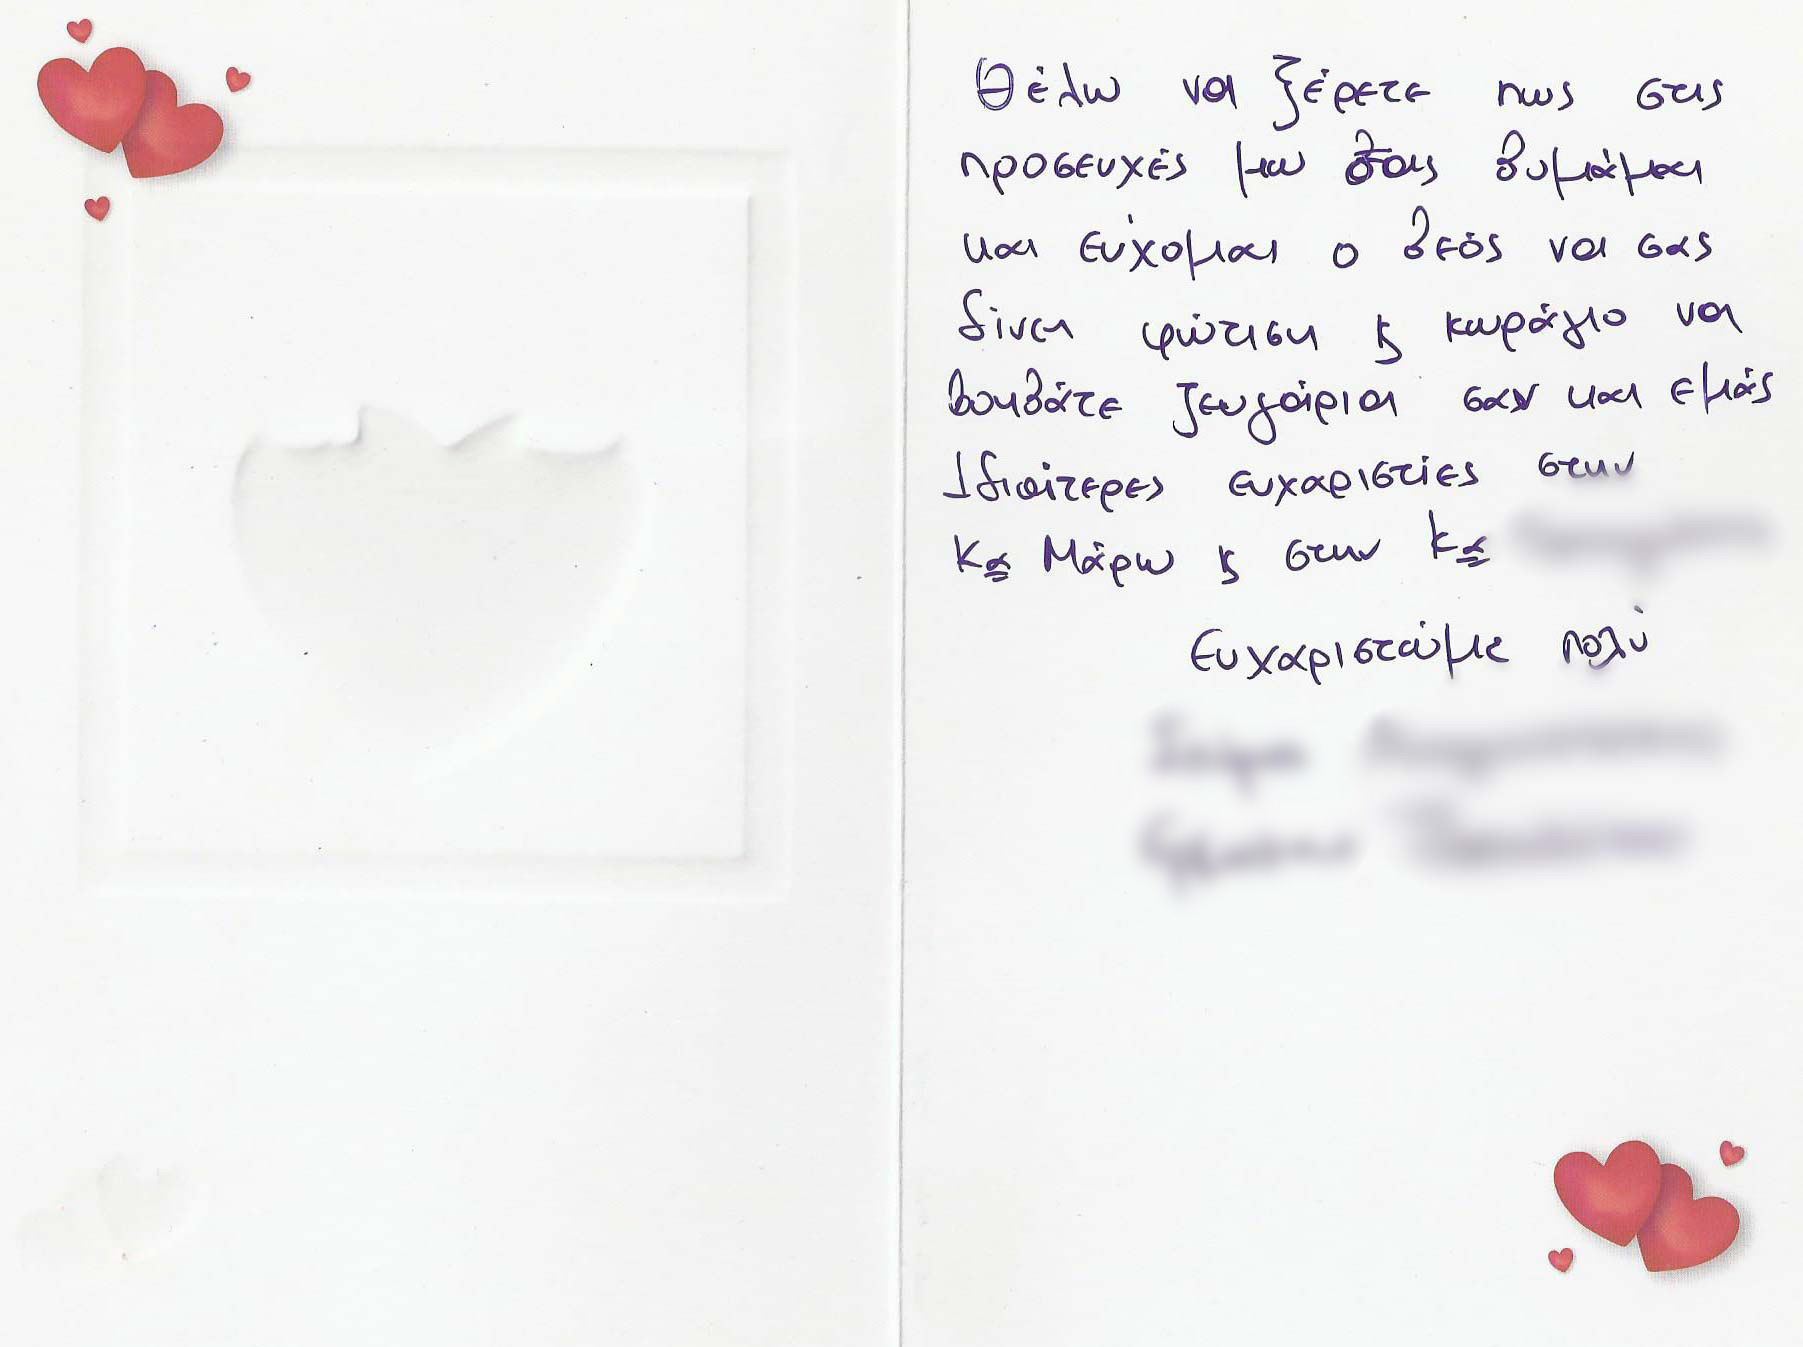 Θέλω να ξέρετε πως στις
προσευχές μου σας θυμάμαι
και εύχομαι ο θεός να σας
δίνει φώτιση κ κουράγιο να
βοηθάτε ζευγάρια σαν και εμάς
Ιδιαίτερες ευχαριστίες στην
Κα Μάρω κ στην Κα
Ευχαριστούμε πολύ